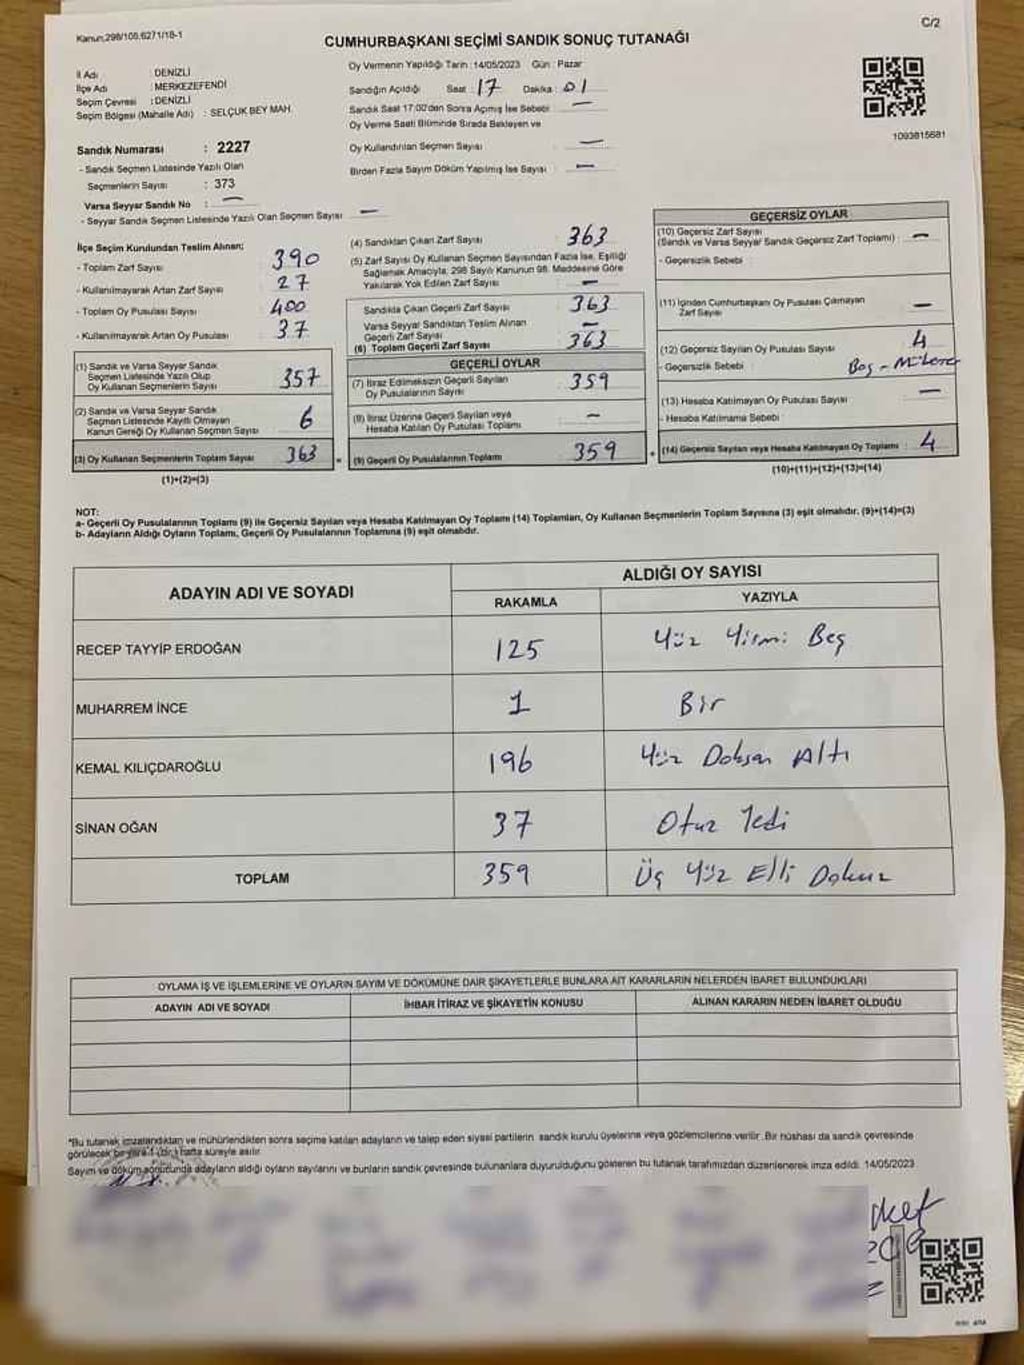 Kanun,298/106.6271/18-1
C/2
CUMHURBAŞKANI SEÇİMİ SANDIK SONUÇ TUTANAĞI
İl Adı : DENİZLİ
İlçe Adı : MERKEZEFENDİ
Seçim Çevresi : DENİZLİ
Seçim Bölgesi (Mahalle Adı) : SELÇUK BEY MAH.
Sandık Numarası : 2227
- Sandık Seçmen Listesinde Yazılı Olan
Seçmenlerin Sayısı : 373
Varsa Seyyar Sandık No : —
- Seyyar Sandık Seçmen Listesinde Yazılı Olan Seçmen Sayısı —
Oy Vermenin Yapıldığı Tarih : 14/05/2023 Gün : Pazar
Sandığın Açıldığı Saat : 17 Dakika : 01
Sandık Saat 17:00'den Sonra Açılmış İse Sebebi : —
Oy Verme Saati Bitiminde Sırada Bekleyen ve
Oy Kullandırılan Seçmen Sayısı : —
Birden Fazla Sayım Döküm Yapılmış İse Sayısı : —
1093815681
İlçe Seçim Kurulundan Teslim Alınan;
- Toplam Zarf Sayısı : 390
- Kullanılmayarak Artan Zarf Sayısı : 27
- Toplam Oy Pusulası Sayısı : 400
- Kullanılmayarak Artan Oy Pusulası : 37
(1) Sandık ve Varsa Seyyar Sandık
Seçmen Listesinde Yazılı Olup
Oy Kullanan Seçmenlerin Sayısı : 357
(2) Sandık ve Varsa Seyyar Sandık
Seçmen Listesinde Kayıtlı Olmayan
Kanun Gereği Oy Kullanan Seçmen Sayısı : 6
(3) Oy Kullanan Seçmenlerin Toplam Sayısı : 363
(1)+(2)=(3)
(4) Sandıktan Çıkan Zarf Sayısı : 363
(5) Zarf Sayısı Oy Kullanan Seçmen Sayısından Fazla İse, Eşitliği
Sağlamak Amacıyla, 298 Sayılı Kanunun 98. Maddesine Göre
Yakılarak Yok Edilen Zarf Sayısı : —
Sandıkta Çıkan Geçerli Zarf Sayısı : 363
Varsa Seyyar Sandıktan Teslim Alınan
Geçerli Zarf Sayısı : —
(6) Toplam Geçerli Zarf Sayısı : 363
GEÇERLİ OYLAR
(7) İtiraz Edilmeksizin Geçerli Sayılan
Oy Pusulasının Sayısı : 359
(8) İtiraz Üzerine Geçerli Sayılan veya
Hesaba Katılan Oy Pusulası Toplamı : —
= (9) Geçerli Oy Pusulalarının Toplamı : 359
GEÇERSİZ OYLAR
(10) Geçersiz Zarf Sayısı
(Sandık ve Varsa Seyyar Sandık Geçersiz Zarf Toplamı) : —
- Geçersizlik Sebebi :
(11) İçinden Cumhurbaşkanı Oy Pusulası Çıkmayan
Zarf Sayısı : —
(12) Geçersiz Sayılan Oy Pusulası Sayısı : 4
- Geçersizlik Sebebi : Boş -
(13) Hesaba Katılmayan Oy Pusulası Sayısı : —
- Hesaba Katılmama Sebebi :
+ (14) Geçersiz Sayılan veya Hesaba Katılmayan Oy Toplamı : 4
(10)+(11)+(12)+(13)=(14)
NOT:
a- Geçerli Oy Pusulalarının Toplamı (9) ile Geçersiz Sayılan veya Hesaba Katılmayan Oy Toplamı (14) Toplamları, Oy Kullanan Seçmenlerin Toplam Sayısına (3) eşit olmalıdır. (9)+(14)=(3)
b- Adayların Aldığı Oyların Toplamı, Geçerli Oy Pusulalarının Toplamına (9) eşit olmalıdır.
ADAYIN ADI VE SOYADI
ALDIĞI OY SAYISI
RAKAMLA YAZIYLA
RECEP TAYYİP ERDOĞAN 125 Yüz Yirmi Beş
MUHARREM İNCE 1 Bir
KEMAL KILIÇDAROĞLU 196 Yüz Doksan Altı
SİNAN OĞAN 37 Otuz Yedi
TOPLAM 359 Üç Yüz Elli Dokuz
OYLAMA İŞ VE İŞLEMLERİNE VE OYLARIN SAYIM VE DÖKÜMÜNE DAİR ŞİKAYETLERLE BUNLARA AİT KARARLARIN NELERDEN İBARET BULUNDUKLARI
ADAYIN ADI VE SOYADI İHBAR İTİRAZ VE ŞİKAYETİN KONUSU ALINAN KARARIN NEDEN İBARET OLDUĞU
*Bu tutanak imzalandıktan ve mühürlendikten sonra seçime katılan adayların ve talep eden siyasi partilerin sandık kurulu üyelerine veya gözlemcilerine verilir. Bir nüshası da sandık çevresinde
görülecek bir yere 1 (bir) hafta süreyle asılır.
Sayım ve döküm sonucunda adayların aldığı oyların sayılarını ve bunların sandık çevresinde bulunanlara duyurulduğunu gösteren bu tutanak tarafımızdan düzenlenerek imza edildi. 14/05/2023